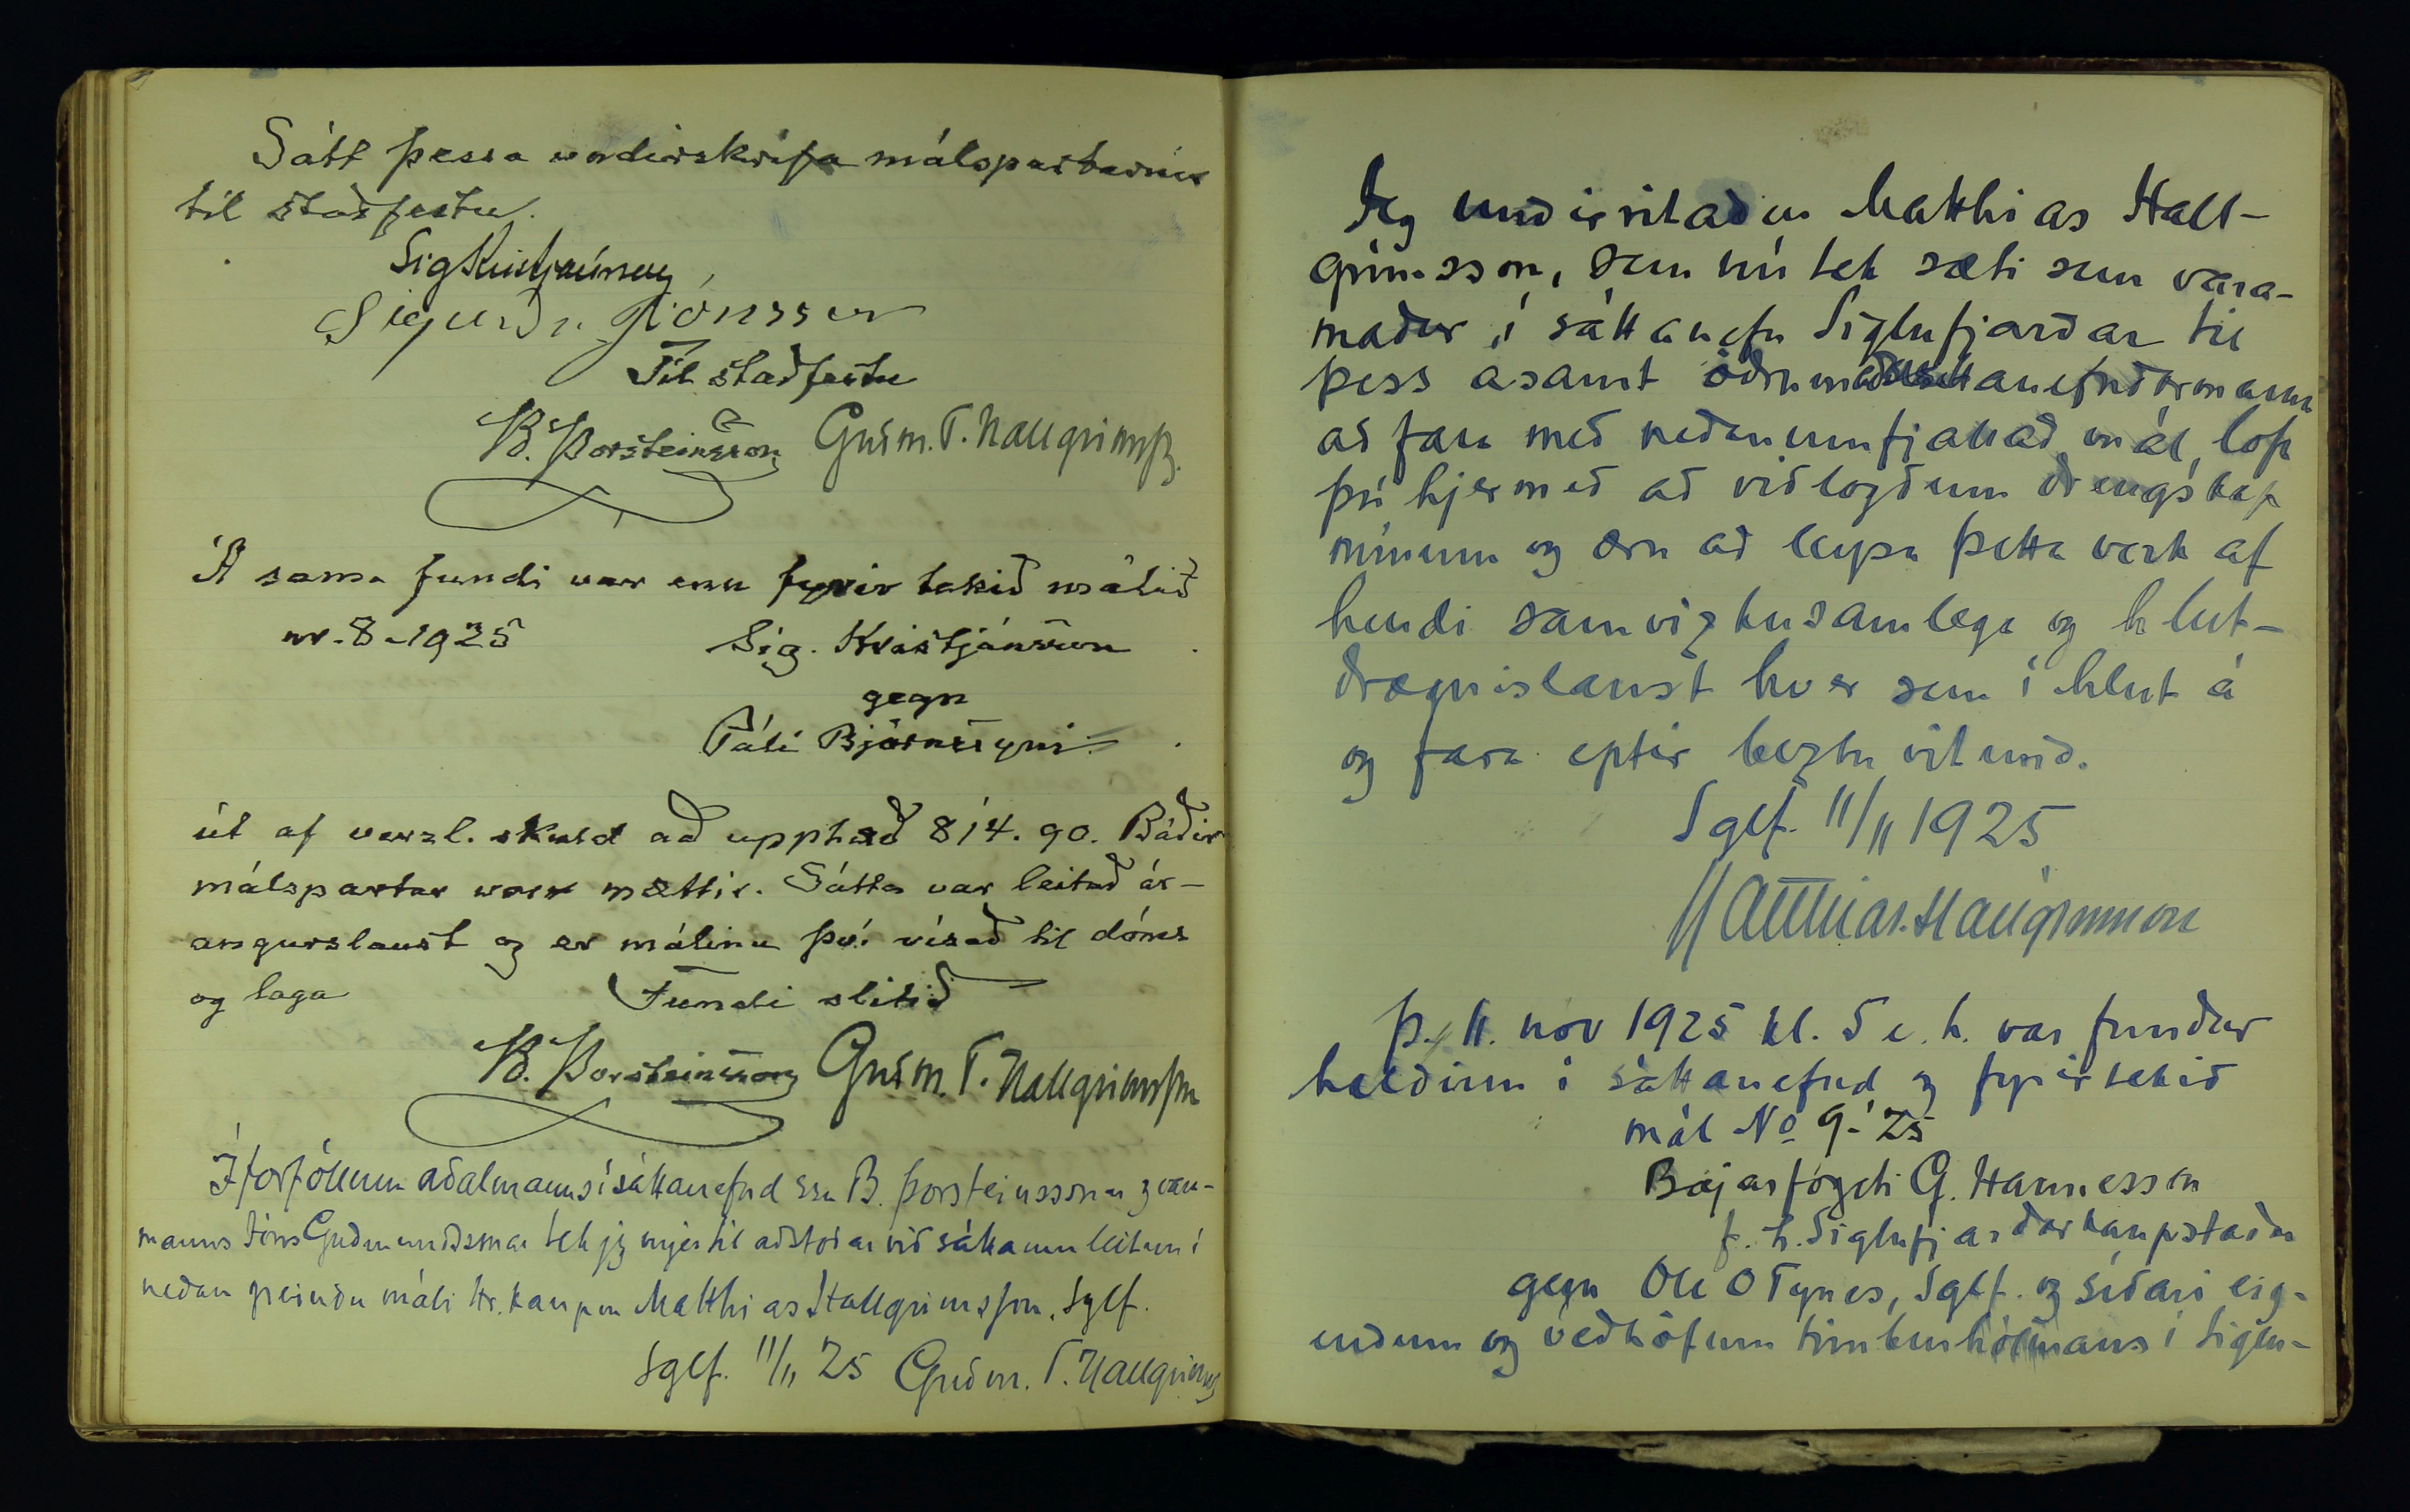 Sátt þessa undirskrifa málspartarnir
til staðfestu.
Sig Kristjánsson
Sigurðr Jónsson
Til staðfestu
B. Þorsteinsson Guðm. T. Hallgrimss.
Á sama fundi var enn fyrir tekið málið
nr. 8 - 1925 Sig. Kristjánsson
gegn
Páli Björnssyni
út af verzl. skuld að upphæð 814.90. Báðir
málspartar voru mættir. Sátta var leitað ár-
angurslaust og er málinu því vísað til dóms
og laga Fundi slitið
B. Þorsteinsson Guðm. T. Hallgrimsson
Í forföllum aðalmanns í sáttanefnd sra B. Þorsteinssonar og vara-
manns Jóns Guðmundssonar tek jeg mjer til aðstoðar við sáttaumleitun í
neðan greindu máli Hr. kaupm Matthias Hallgrimsson, Sglf.
Sglf. 11/11 25 Guðm. T. Hallgrimss
Jeg undirritaður Matthias Hall-
grímsson, sem nú tek sæti sem vara-
maður í sáttanefn Siglufjarðar til
þess ásamt öðrum sáttanefndarmanni
að fara með neðanumfjallað mál, lofa
því hjermeð að viðlögðum drengskap
mínum og æru að leysa þetta verk af
hendi samvizkusamlega og hlut-
drægnislaust hver sem í hlut á
og fara eptir beztu vitund.
Sglf. 11/11 1925
Matthias Hallgrimsson
Þ. 11. nóv 1925 kl. 5 e. h. var fundur
haldinn í sáttanefnd og fyrirtekið
mál No 9 - '25
Bæjarfógeti G. Hannesson
f. h. Siglufjarðarkaupstaðar
gegn Ole O Tynes, Sglf. og síðari eig-
endum og veðhöfum timburhólmans í Siglu-